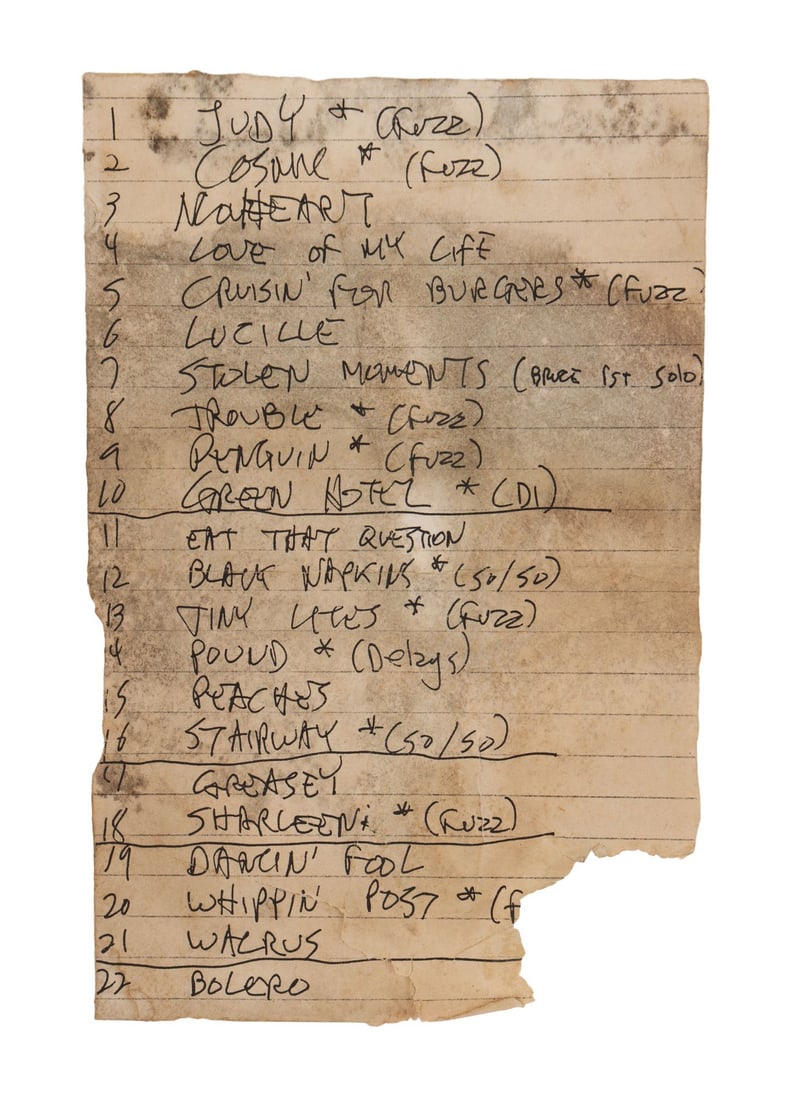 1 JUDY * (fuzz)
2 COSMIK * (fuzz)
3 NO HEART
4 LOVE of MY LIFE
5 CRUISIN' FOR BURGERS * (fuzz)
6 LUCILLE
7 STOLEN MOMENTS (BRUCE 1st solo)
8 TROUBLE * (fuzz)
9 PENGUIN * (fuzz)
10 GREEN HOTEL * (DI)
11 EAT THAT QUESTION
12 BLACK NAPKINS * (50/50)
13 TINY LITES * (fuzz)
14 POUND * (Delays)
15 PEACHES
16 STAIRWAY * (50/50)
17 GREASEY
18 SHARLEENA * (fuzz)
19 DANCIN' FOOL
20 WHIPPIN' POST * (f
21 WALRUS
22 BOLERO